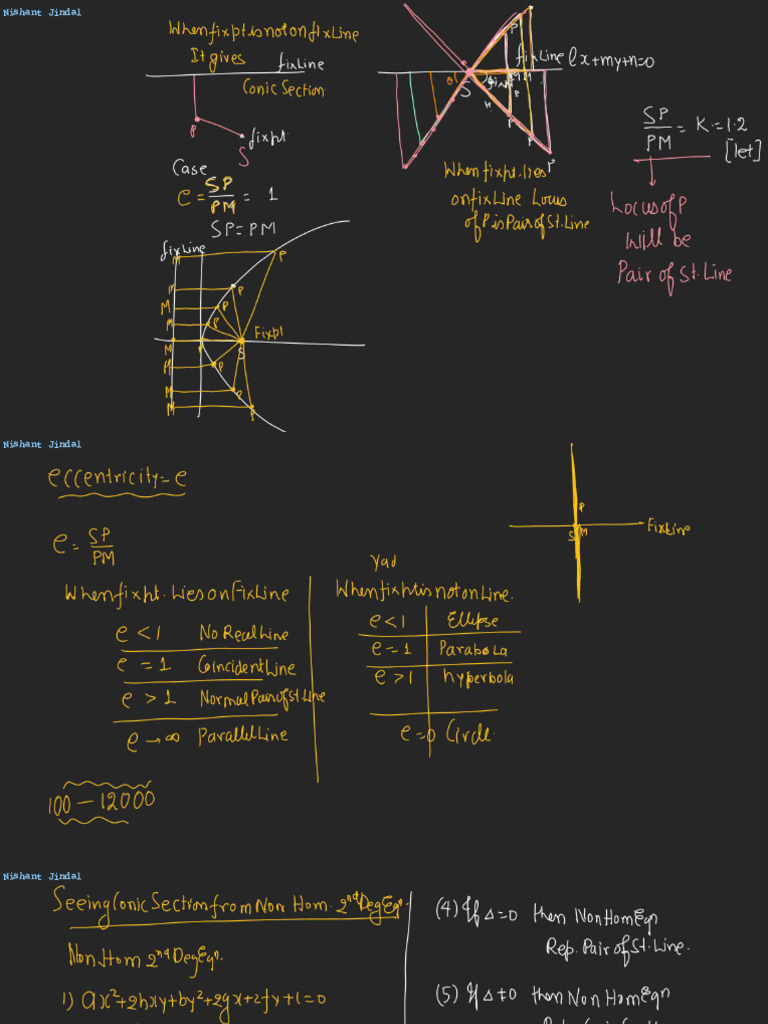 Nishant Jindal
When fix pt is not on fix Line
It gives
fixLine
Conic Section
P
fix pt
S
Case
e = SP/PM = 1
SP = PM
fixLine
M
P
M
P
M
P
M
P
Fix pt
M
S
M
P
M
P
M
P
fixLine lx+my+n=0
P
S
M
P
P
When fix pt. lies
on fix Line Locus
of P is Pair of St. Line
SP/PM = K = 1.2
[let]
Locus of P
Will be
Pair of St. Line
Nishant Jindal
eccentricity = e
e = SP/PM
P
S M
Fix Line
When fix pt. Lies on Fix Line
e < 1 No Real Line
e = 1 Coincident Line
e > 1 Normal Pair of St. Line
e → ∞ Parallel Line
Yad
When fix pt is not on Line.
e < 1 Ellipse
e = 1 Parabola
e > 1 hyperbola
e = 0 Circle
100 – 12000
Nishant Jindal
Seeing Conic Section from Non Hom. 2nd Deg Eqn.
Non Hom 2nd Deg Eqn.
1) ax²+2hxy+by²+2gx+2fy+c=0
(4) If Δ=0 then Non Hom Eqn
Rep. Pair of St. Line.
(5) If Δ≠0 then Non Hom Eqn